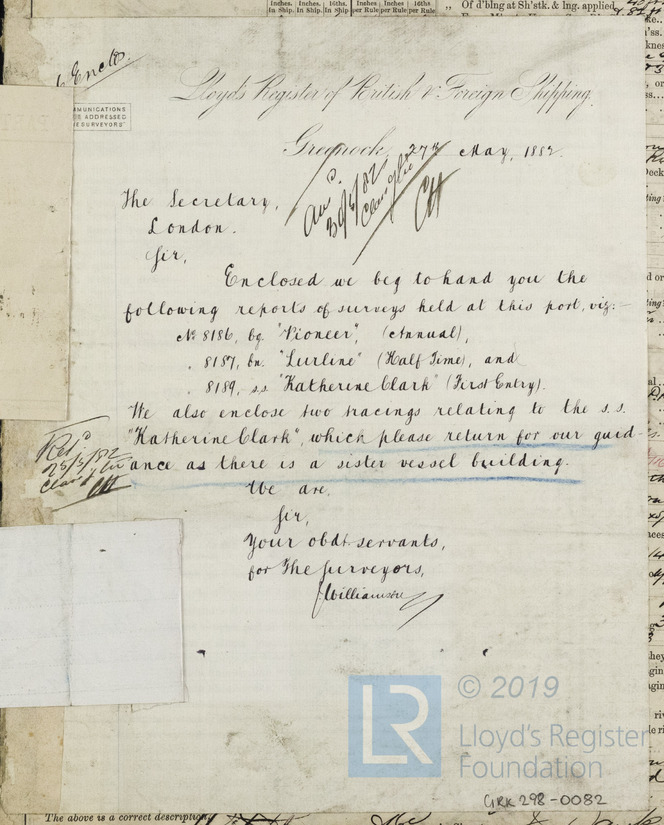 Inches. Inches. 16ths. Inches Inches 16ths
In Ship. In Ship. In Ship per Rule per Rule per Rule
„ Of d'blng at Sh'stk. & lng. applied
6 Enclo.
MMUNICATIONS
ADDRESSED
SURVEYORS"
Lloyd's Register of British & Foreign Shipping.
Greenock, 27th May, 1882.
The Secretary,
London.
Sir,
Enclosed we beg to hand you the
following reports of surveys held at this port, viz:—
No 8186, bg. "Pioneer", (Annual),
" 8187, bn. "Lurline" (Half Time), and
" 8189, s.s. "Katherine Clark" (First Entry).
We also enclose two tracings relating to the s.s.
"Katherine Clark", which please return for our guid-
ance as there is a sister vessel building.
We are,
Sir,
Your obdt servants,
for The Surveyors,
JWilliamson
© 2019
LR
Lloyd's Register
Foundation
GRK 298-0082
The above is a correct description